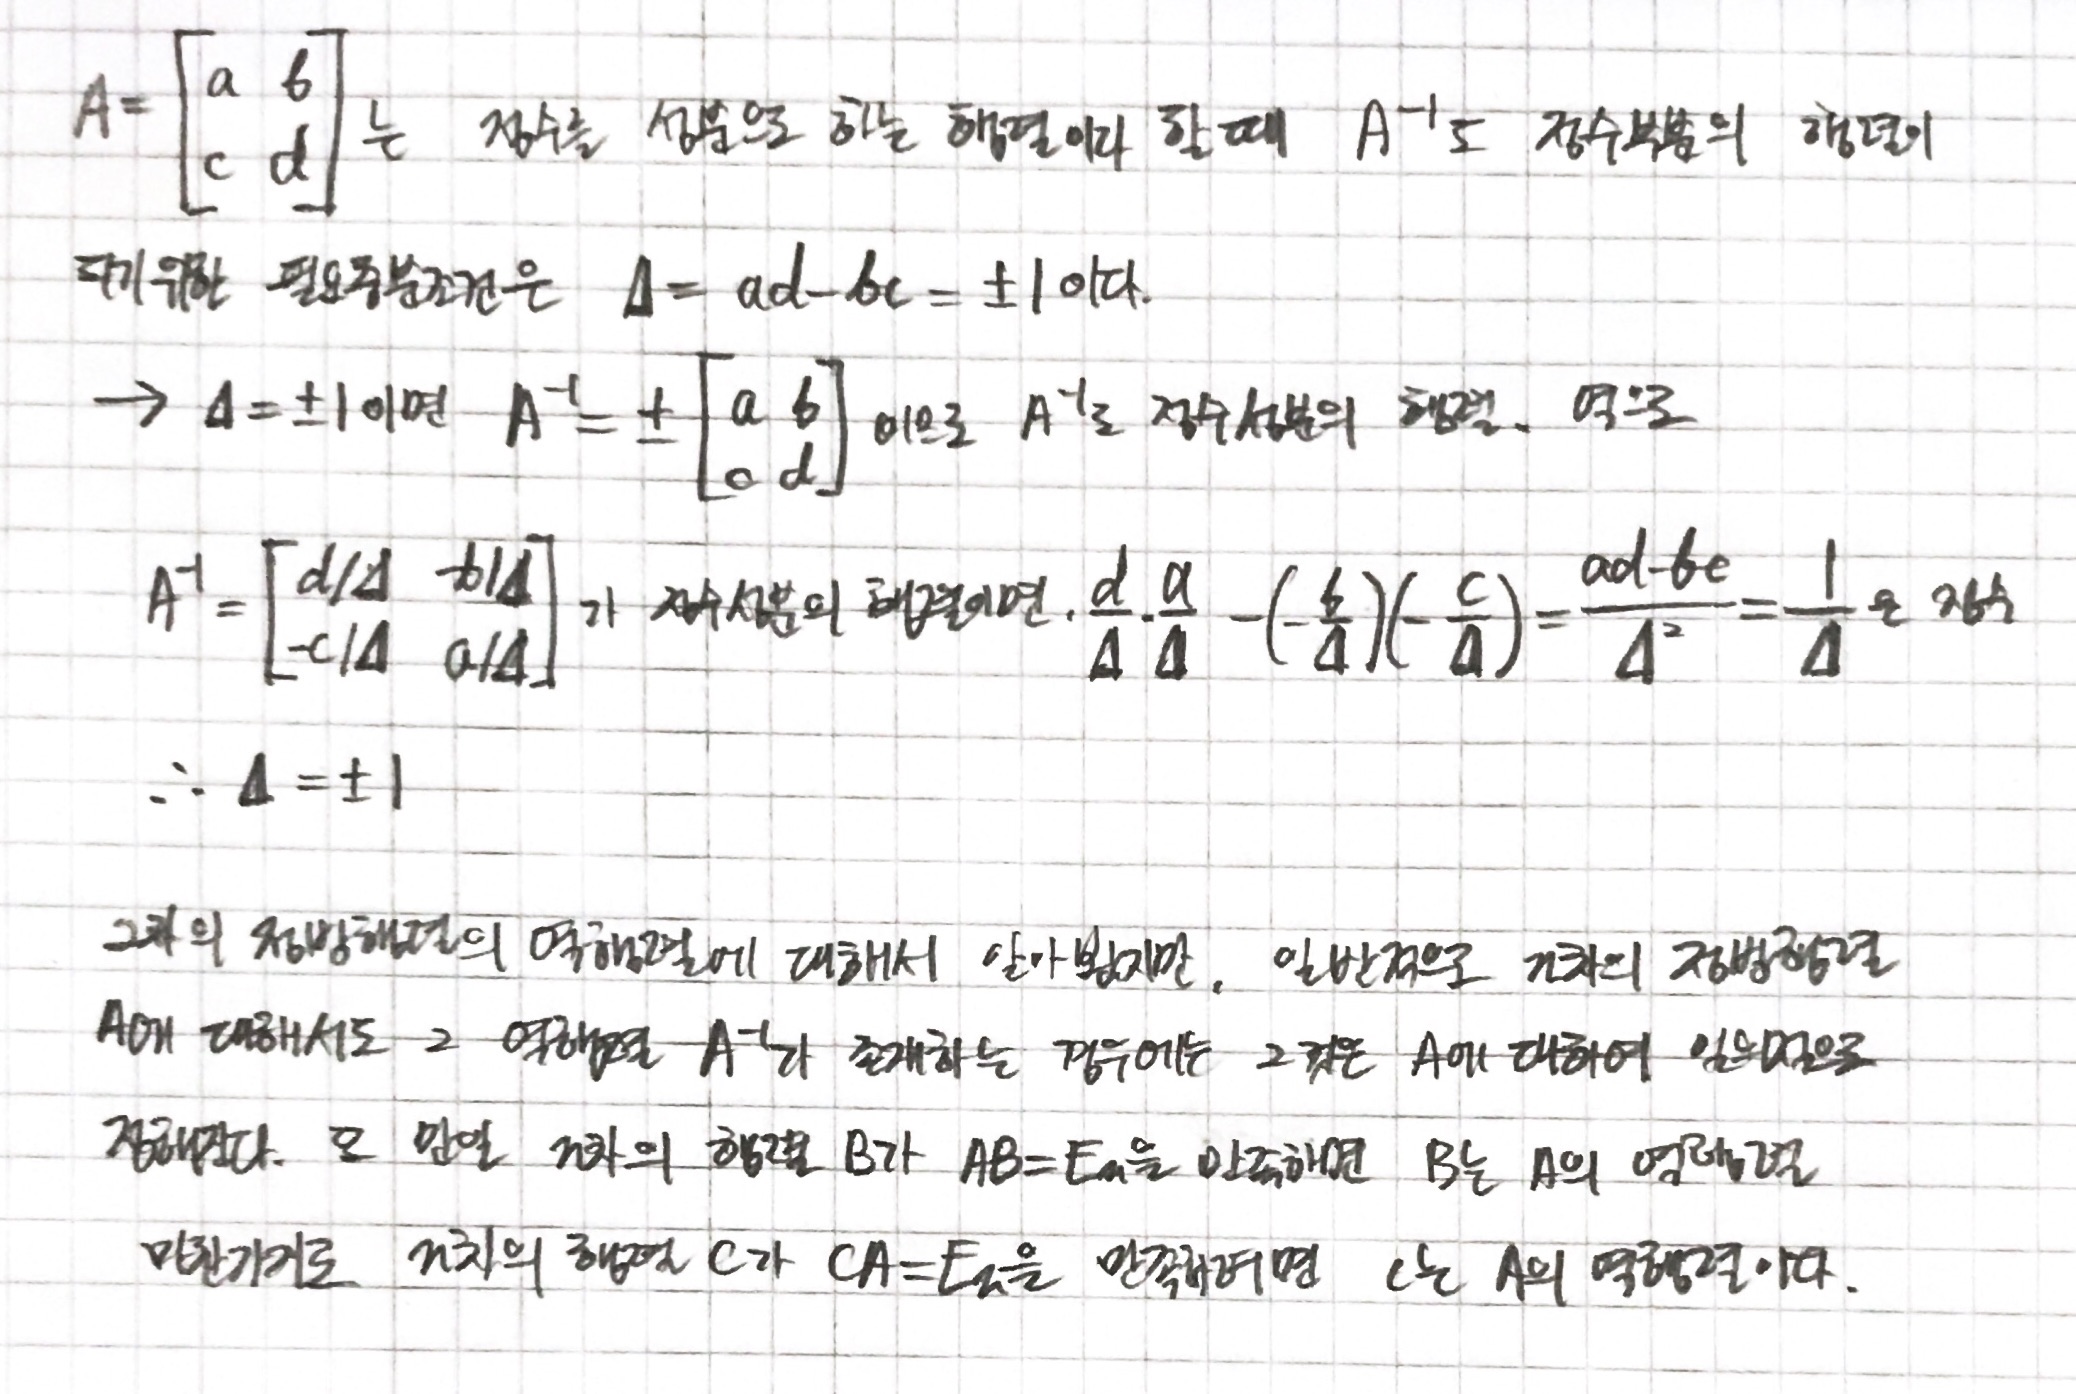 A = [a b; c d] 는 정수를 성분으로 하는 행렬이다 할 때 A⁻¹도 정수성분의 행렬이
되기 위한 필요충분조건은 Δ = ad-bc = ±1 이다.
→ Δ = ±1 이면 A⁻¹ = ± [a b; c d] 이므로 A⁻¹도 정수성분의 행렬. 역으로
A⁻¹ = [d/Δ -b/Δ; -c/Δ a/Δ] 가 정수성분의 행렬이면. d/Δ · a/Δ - (-b/Δ)(-c/Δ) = (ad-bc)/Δ² = 1/Δ 은 정수
∴ Δ = ±1
2차의 정방행렬의 역행렬에 대해서 알아봤지만, 일반적으로 n차의 정방행렬
A에 대해서도 그 역행렬 A⁻¹가 존재하는 경우에는 그것은 A에 대하여 일의적으로
정해진다. 또 만일 n차의 행렬 B가 AB=Eₙ을 만족하면 B는 A의 역행렬
마찬가지로 n차의 행렬 C가 CA=Eₙ을 만족하면 C는 A의 역행렬이다.